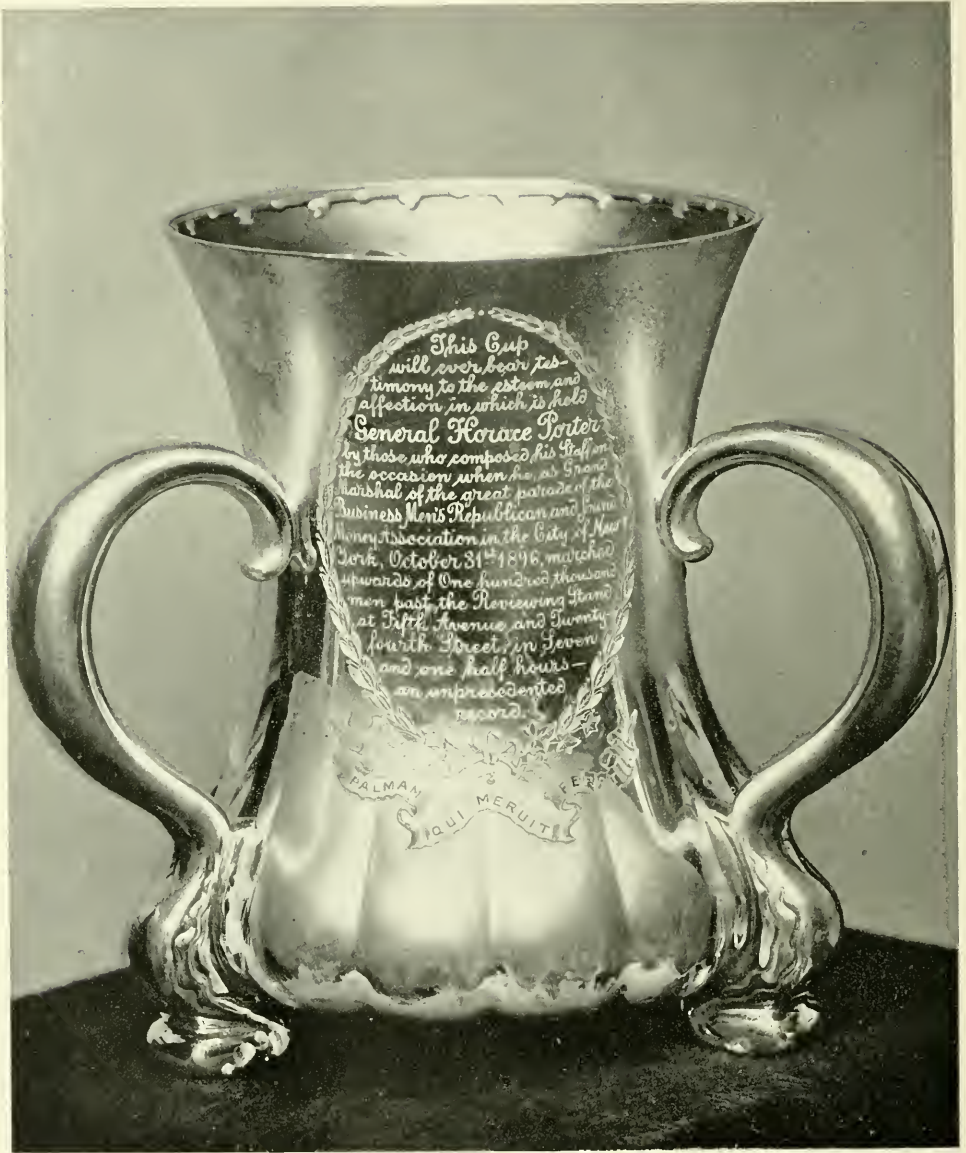 This Cup
will ever bear tes-
timony to the esteem and
affection in which is held
General Horace Porter
by those who composed his Staff on
the occasion when he, as Grand
Marshal of the great parade of the
Business Men's Republican and Sound
Money Association in the City of New
York, October 31st 1896, marched
upwards of One hundred thousand
men past the Reviewing Stand
at Fifth Avenue and Twenty-
fourth Street, in Seven
and one half hours—
an unpresedented
record.
PALMAM QUI MERUIT